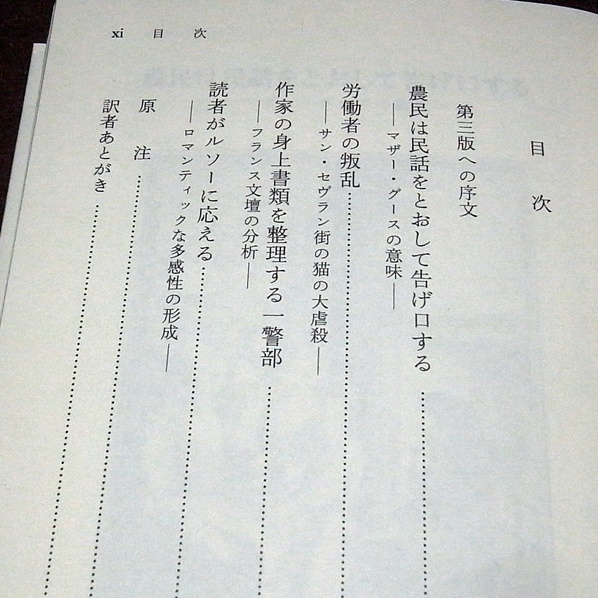 xi 目次
目次
第三版への序文
農民は民話をとおして告げ口する
――マザー・グースの意味――
労働者の叛乱
――サン・セヴラン街の猫の大虐殺――
作家の身上書類を整理する一警部
――フランス文壇の分析――
読者がルソーに応える
――ロマンティックな多感性の形成――
原注
訳者あとがき